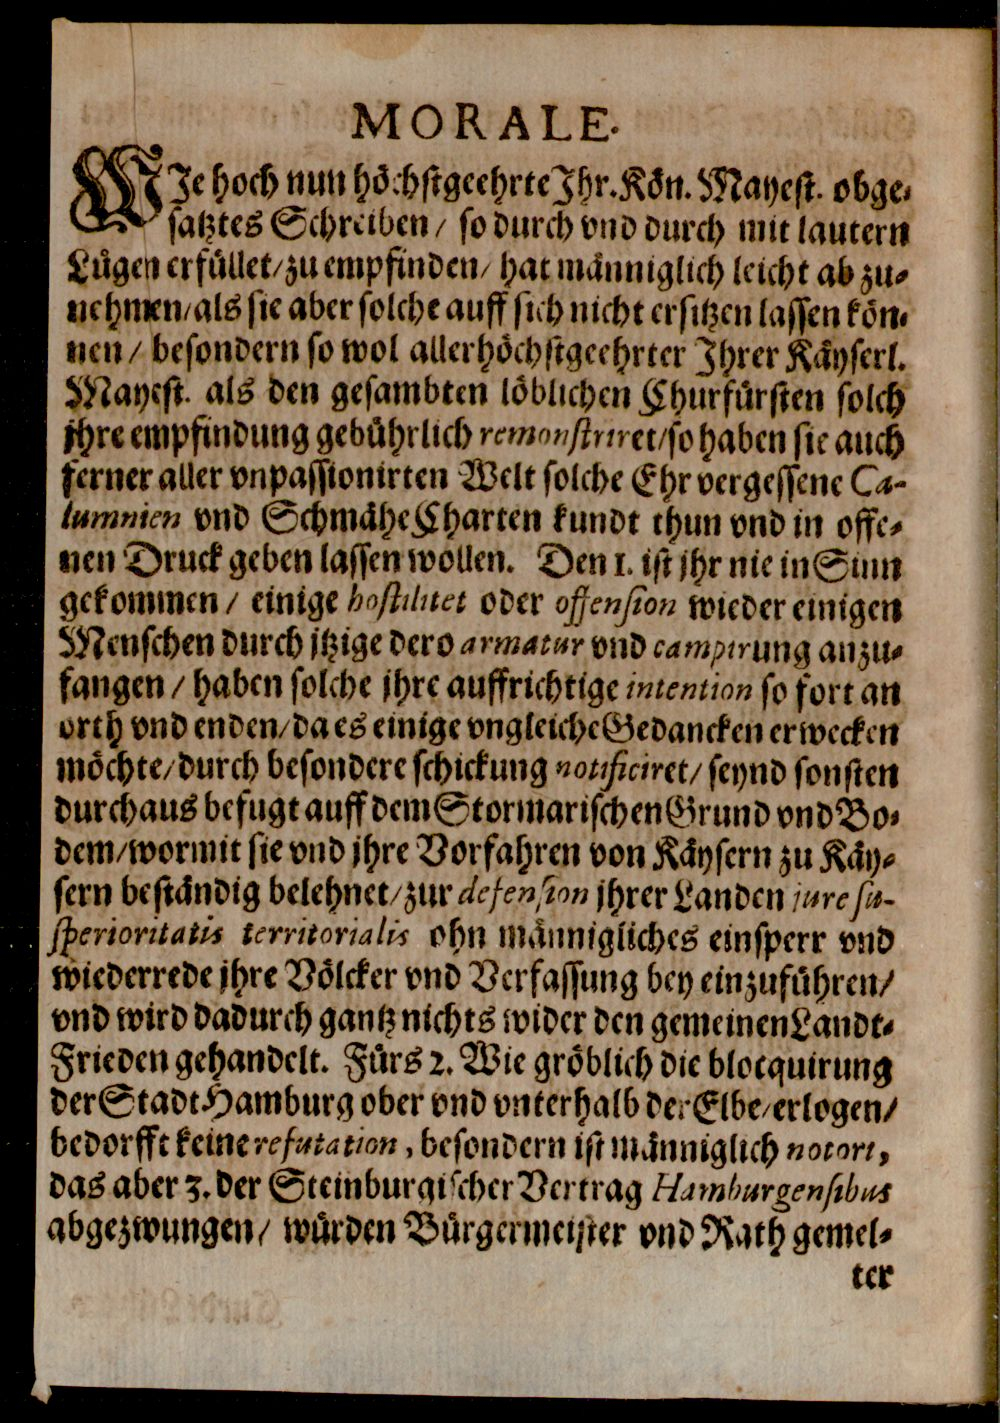 MORALE.
WJe hoch nun höchstgeehrte Jhr. Kön. Mayest. obge-
satztes Schreiben / so durch vnd durch mit lautern
Lügen erfüllet / zu empfinden / hat männiglich leicht ab zu-
nehmen / als sie aber solche auff sich nicht ersitzen lassen kön-
nen / besondern so wol allerhöchstgeehrter Jhrer Käyserl.
Mayest. als den gesambten löblichen Churfürsten solch
jhre empfindung gebührlich remonstriret / so haben sie auch
ferner aller vnpassionirten Welt solche Ehr vergessene Ca-
lumnien vnd SchmäheCharten kundt thun vnd in offe-
nen Druck geben lassen wollen. Den 1. ist jhr nie in Sinn
gekommen / einige hostilitet oder offension wieder einigen
Menschen durch jtzige dero armatur vnd campirung anzu-
fangen / haben solche jhre auffrichtige intention so fort an
orth vnd enden / da es einige vngleiche Gedancken erwecken
möchte / durch besondere schickung notificiret / seynd sonsten
durchaus befugt auff dem Stormarischen Grund vnd Bo-
dem / wormit sie vnd jhre Vorfahren von Käysern zu Käy-
sern beständig belehnet / zur defension jhrer Landen jure su-
sperioritatis territorialis ohn männigliches einsperr vnd
wiederrede jhre Völcker vnd Verfassung bey einzuführen /
vnd wird dadurch gantz nichts wider den gemeinen Landt-
Frieden gehandelt. Fürs 2. Wie gröblich die blocquirung
der Stadt Hamburg ober vnd vnterhalb der Elbe / erlogen /
bedorfft keine refutation, besondern ist männiglich notori,
das aber 3. der Steinburgischer Vertrag Hamburgensibus
abgezwungen / würden Bürgermeister vnd Rath gemel-
ter